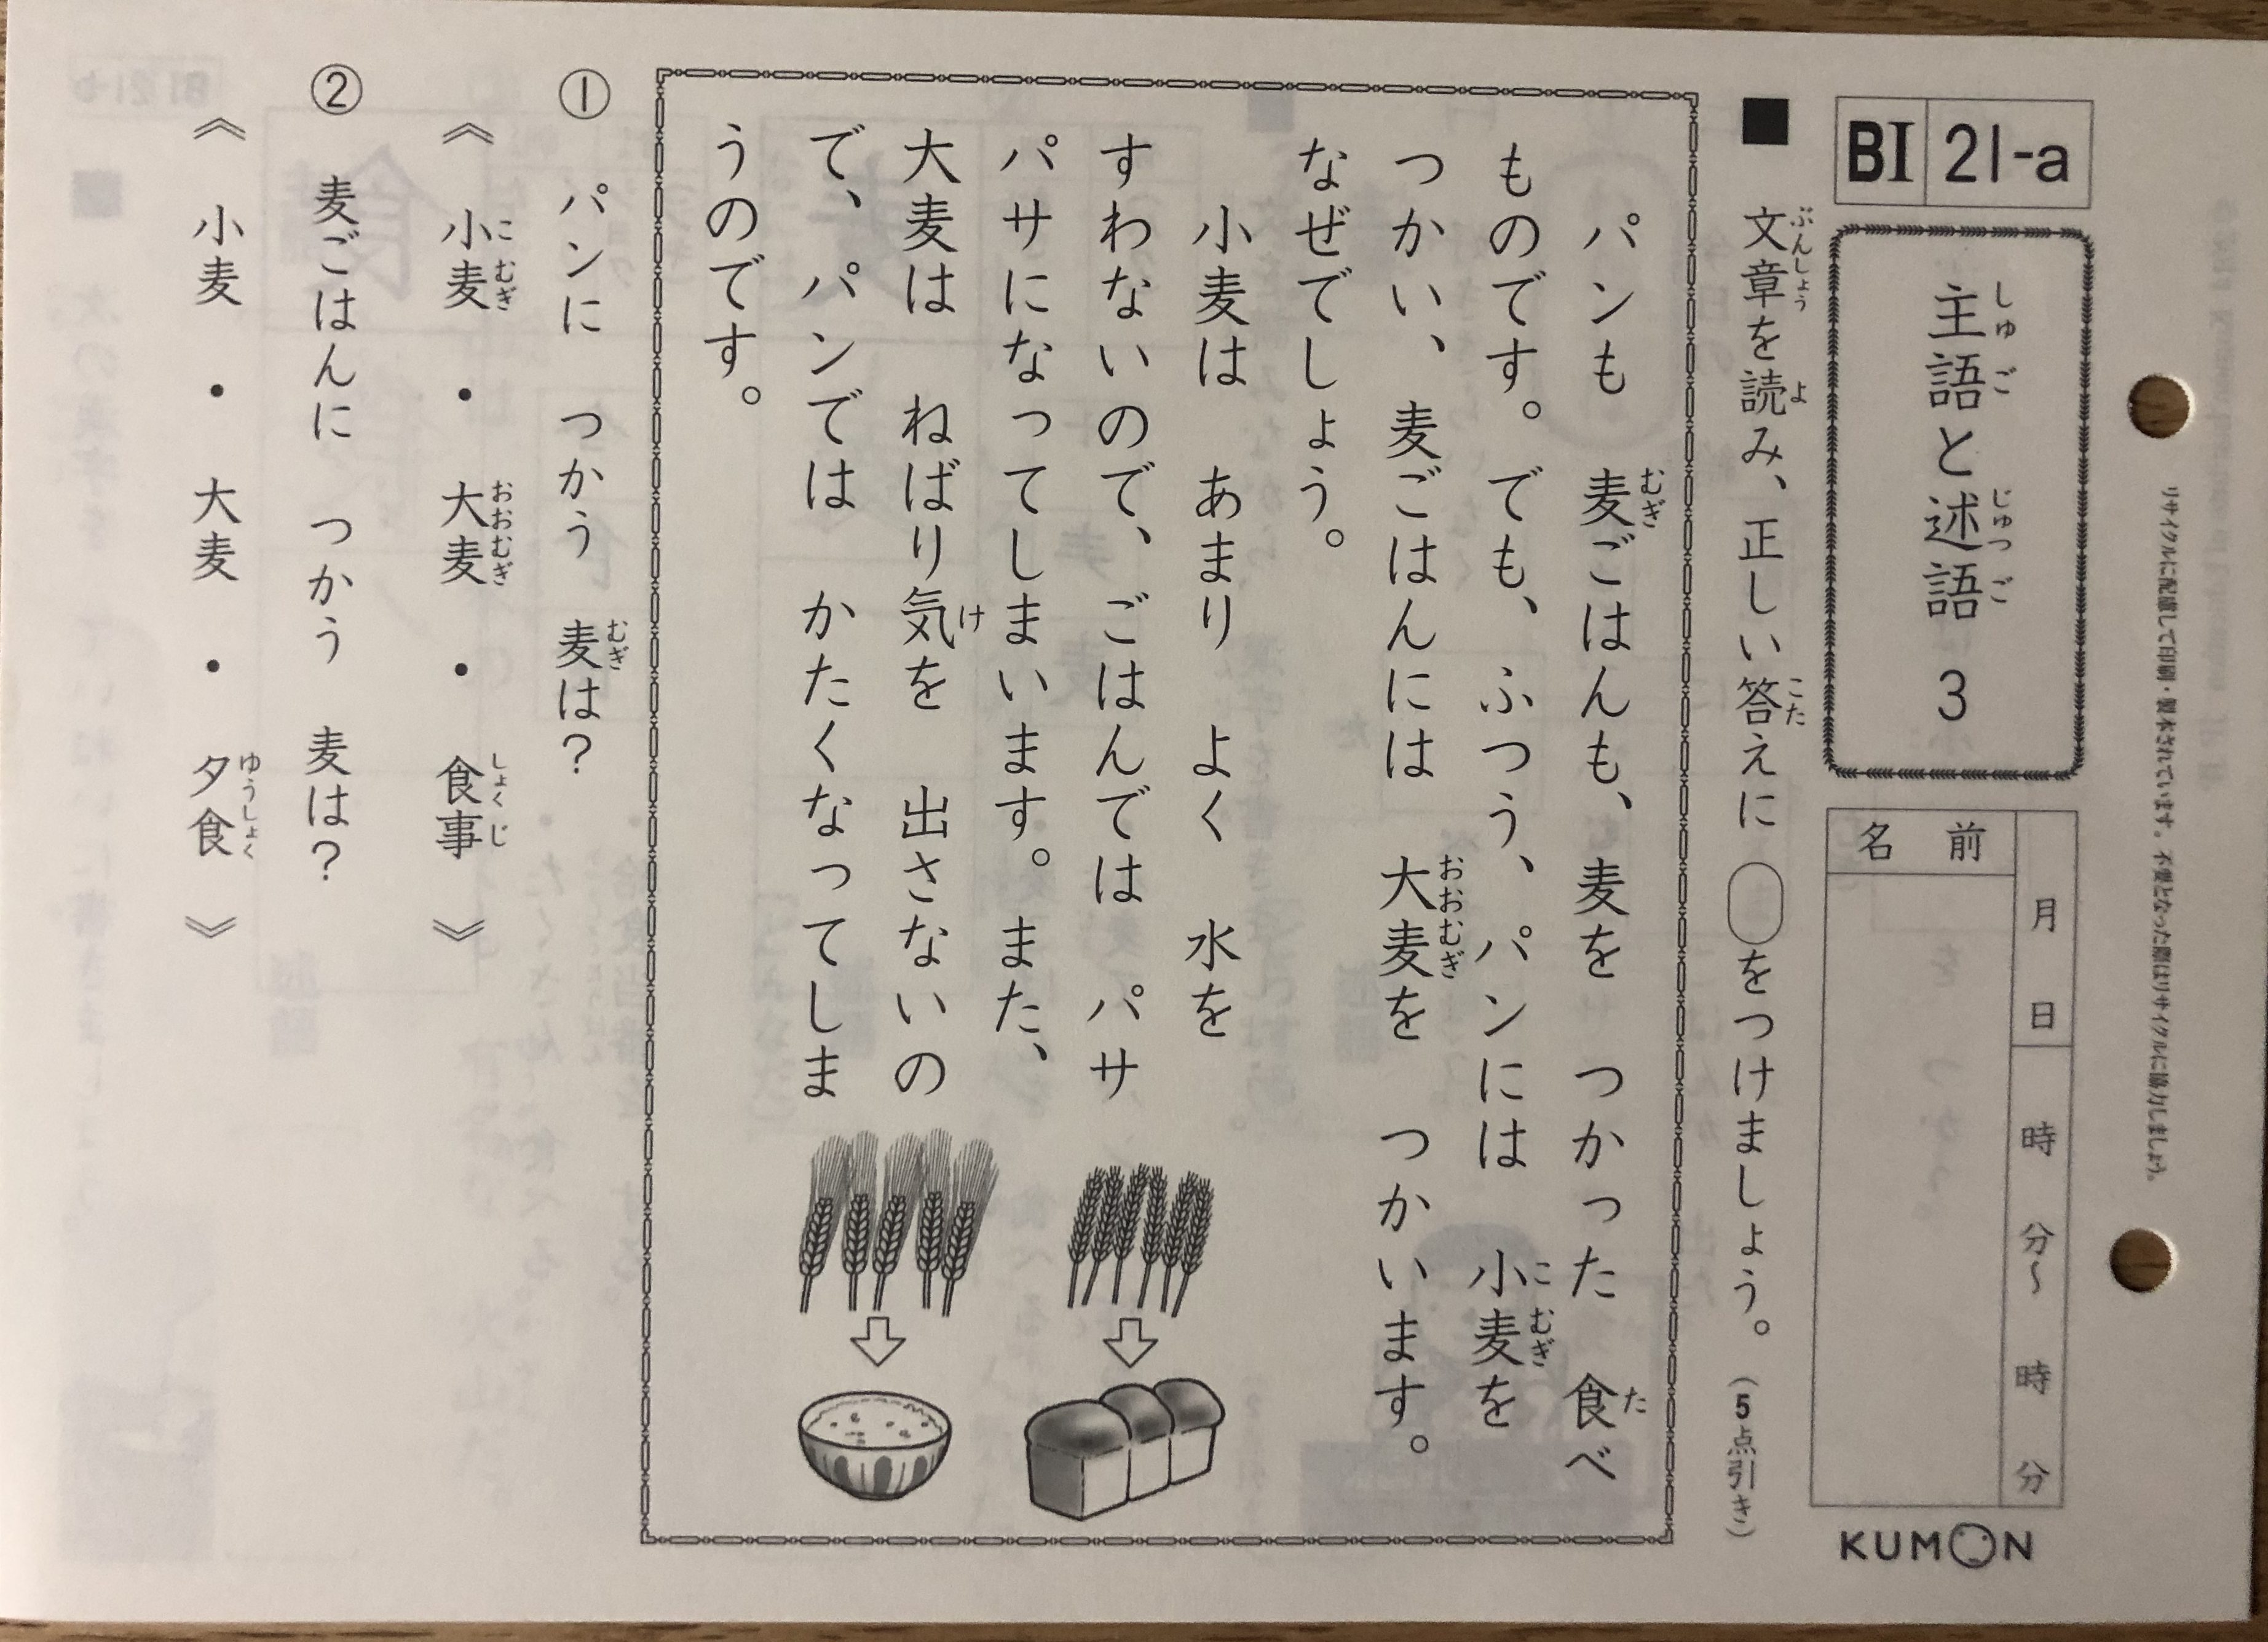 リサイクルに配慮して印刷・製本されています。不要となった際はリサイクルに協力しましょう。
BI 21-a
主語と述語 3
しゅご じゅつご
月 日 時 分～ 時 分
名前
KUMON
■ 文章を読み、正しい答えに ◯をつけましょう。(5点引き)
ぶんしょう よ こた
パンも 麦ごはんも、麦を つかった 食べ
むぎ た
ものです。でも、ふつう、パンには 小麦を
こむぎ
つかい、麦ごはんには 大麦を つかいます。
おおむぎ
なぜでしょう。
小麦は あまり よく 水を
すわないので、ごはんでは パサ
パサになってしまいます。また、
大麦は ねばり気を 出さないの
け
で、パンでは かたくなってしま
うのです。
① パンに つかう 麦は?
むぎ
《 小麦 ・ 大麦 ・ 食事 》
こむぎ おおむぎ しょくじ
② 麦ごはんに つかう 麦は?
《 小麦 ・ 大麦 ・ 夕食 》
ゆうしょく